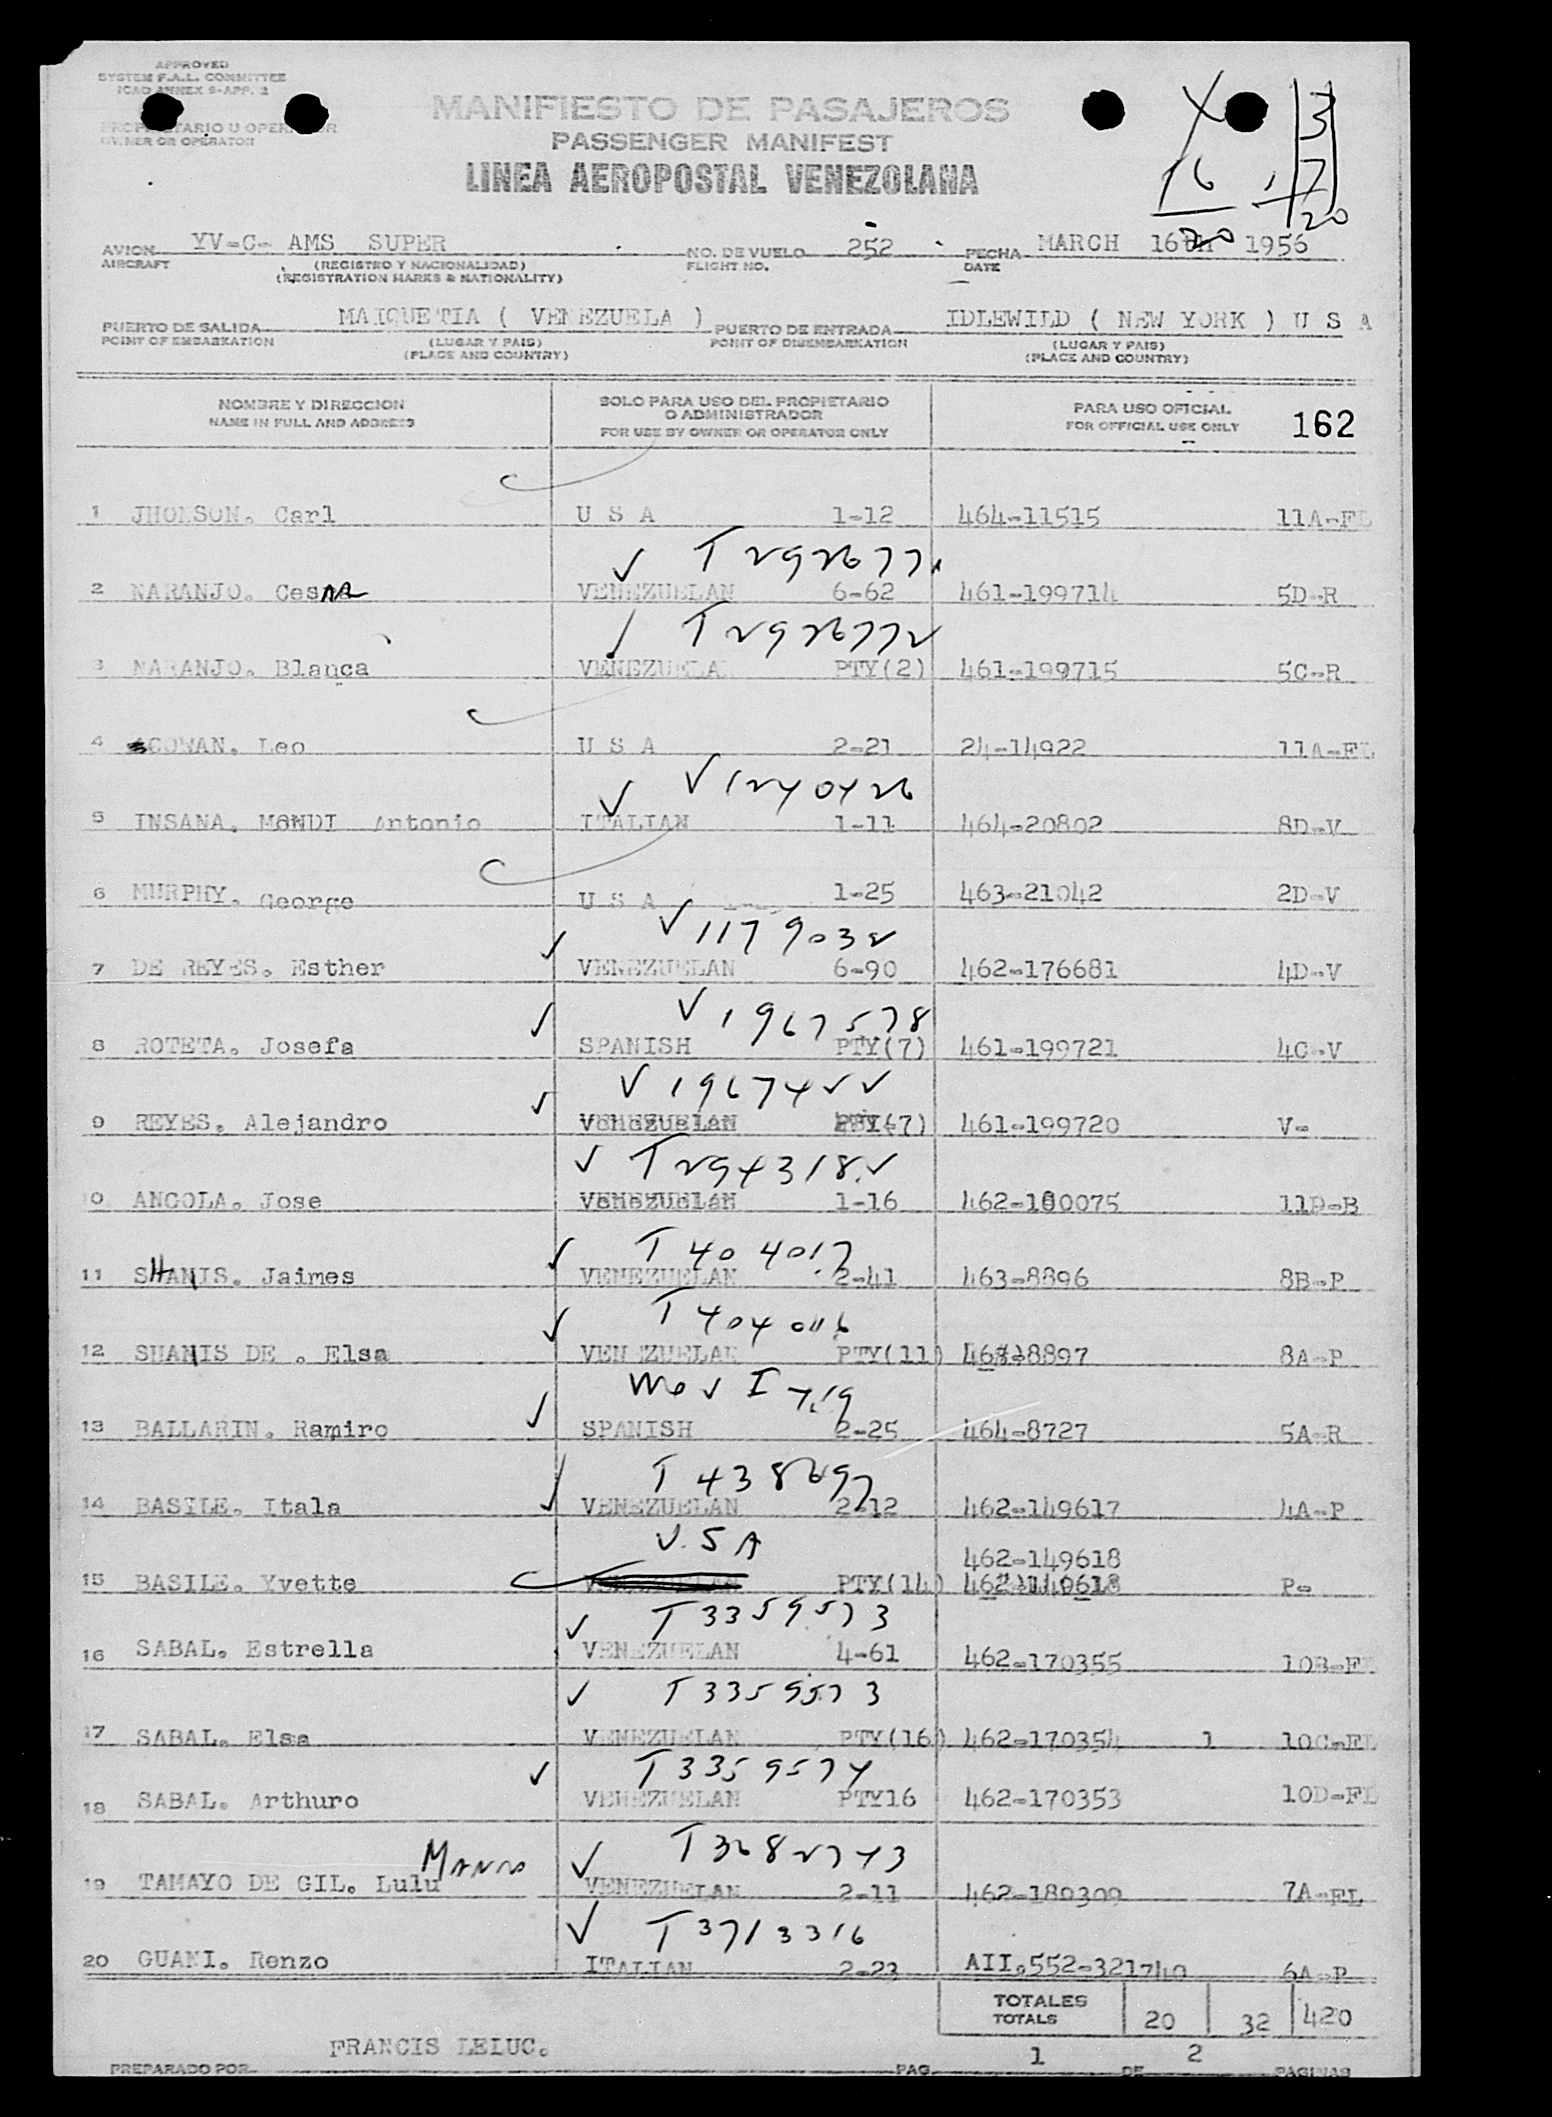 APPROVED
SYSTEM F.A.L. COMMITTEE
ICAO ANNEX 9-APP. 2
PROPIETARIO U OPERADOR
OWNER OR OPERATOR
MANIFIESTO DE PASAJEROS
PASSENGER MANIFEST
LINEA AEROPOSTAL VENEZOLANA
16 17
20
3
7
20
AVION YV-C- AMS SUPER NO. DE VUELO 252 FECHA MARCH 16th 1956
AIRCRAFT (REGISTRO Y NACIONALIDAD) FLIGHT NO. DATE
(REGISTRATION MARKS & NATIONALITY)
PUERTO DE SALIDA MAIQUETIA ( VENEZUELA ) PUERTO DE ENTRADA IDLEWILD ( NEW YORK ) U S A
POINT OF EMBARKATION (LUGAR Y PAIS) POINT OF DISEMBARKATION (LUGAR Y PAIS)
(PLACE AND COUNTRY) (PLACE AND COUNTRY)
NOMBRE Y DIRECCION SOLO PARA USO DEL PROPIETARIO PARA USO OFICIAL
NAME IN FULL AND ADDRESS O ADMINISTRADOR FOR OFFICIAL USE ONLY 162
FOR USE BY OWNER OR OPERATOR ONLY
1 JHONSON. Carl U S A 1-12 464-11515 11A-FL
T292677
2 NARANJO. Cesar VENEZUELAN 6-62 461-199714 5D-R
T2926772
3 NARANJO. Blanca VENEZUELA PTY(2) 461-199715 5C-R
4 COWAN. Leo U S A 2-21 24-14922 11A-FL
V1240426
5 INSANA. MONDI Antonio ITALIAN 1-11 464-20802 8D-V
6 MURPHY. George U S A 1-25 463-21042 2D-V
V1179032
7 DE REYES. Esther VENEZUELAN 6-90 462-176681 4D-V
V1967578
8 ROTETA. Josefa SPANISH PTY(7) 461-199721 4C-V
V1967422
9 REYES. Alejandro VENEZUELAN PTY(7) 461-199720 V-
T294318
10 ANGOLA. Jose VENEZUELAN 1-16 462-180075 11D-B
T404017
11 SHANIS. Jaimes VENEZUELAN 2-41 463-8896 8B-P
T404016
12 SHANIS DE . Elsa VENEZUELAN PTY(11) 463-8897 8A-P
13 BALLARIN. Ramiro SPANISH 2-25 464-8727 5A-R
T438697
14 BASILE. Itala VENEZUELAN 2-12 462-149617 4A-P
U.S A
462-149618
15 BASILE. Yvette VENEZUELAN PTY(14) 462-149618 P-
T3359573
16 SABAL. Estrella VENEZUELAN 4-61 462-170355 10B-FL
T3359573
17 SABAL. Elsa VENEZUELAN PTY(16) 462-170354 1 10C-FL
T3359574
18 SABAL. Arthuro VENEZUELAN PTY16 462-170353 10D-FL
T3682743
19 TAMAYO DE GIL. Lulu VENEZUELAN 2-11 462-180309 7A-FL
T3713316
20 GUANI. Renzo ITALIAN 2-23 AII.552-321740 6A-P
TOTALES
TOTALS 20 32 420
FRANCIS LELUC.
PREPARADO POR PAG. 1 DE 2 PAGINAS